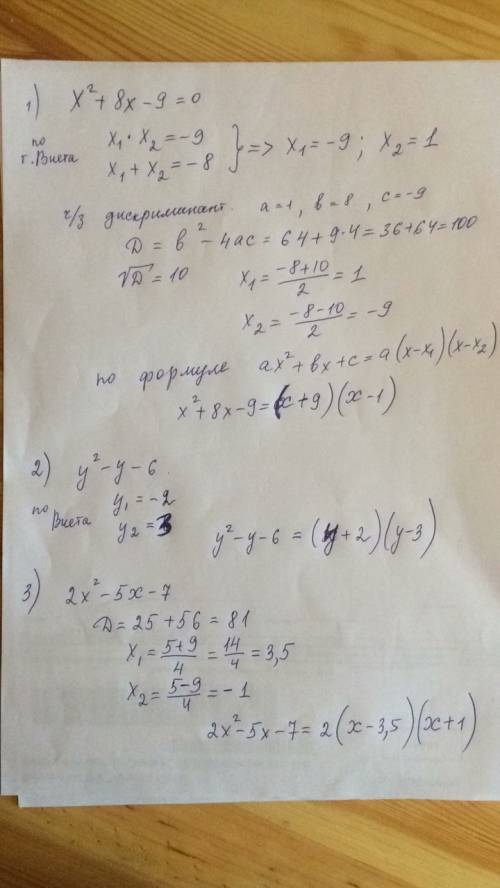 1) x² + 8x - 9 = 0
по т. Виета x₁ · x₂ = -9
x₁ + x₂ = -8 } => x₁ = -9 ; x₂ = 1
ч/з дискриминант. a = 1, b = 8, c = -9
D = b² - 4ac = 64 + 9·4 = 36 + 64 = 100
√D = 10 x₁ = (-8+10)/2 = 1
x₂ = (-8-10)/2 = -9
по формуле ax² + bx + c = a(x-x₁)(x-x₂)
x² + 8x - 9 = (x+9)(x-1)
2) y² - y - 6.
по Виета y₁ = -2
y₂ = 3
y² - y - 6 = (y+2)(y-3)
3) 2x² - 5x - 7
D = 25 + 56 = 81
x₁ = (5+9)/4 = 14/4 = 3,5
x₂ = (5-9)/4 = -1
2x² - 5x - 7 = 2(x-3,5)(x+1)